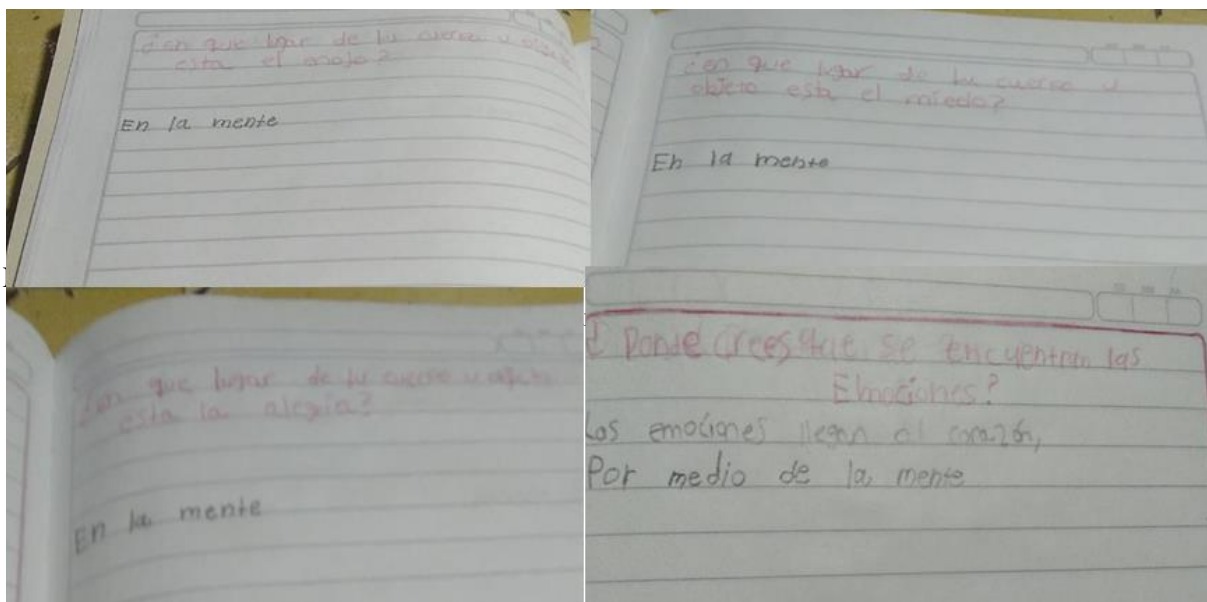 ¿en que lugar de tu cuerpo u objeto
esta el enojo?
En la mente
¿en que lugar de tu cuerpo u
objeto esta el miedo?
En la mente
¿en que lugar de tu cuerpo u objeto
esta la alegria?
En la mente
¿Donde crees que se encuentran las
Emociones?
Las emociones llegan al corazón,
Por medio de la mente